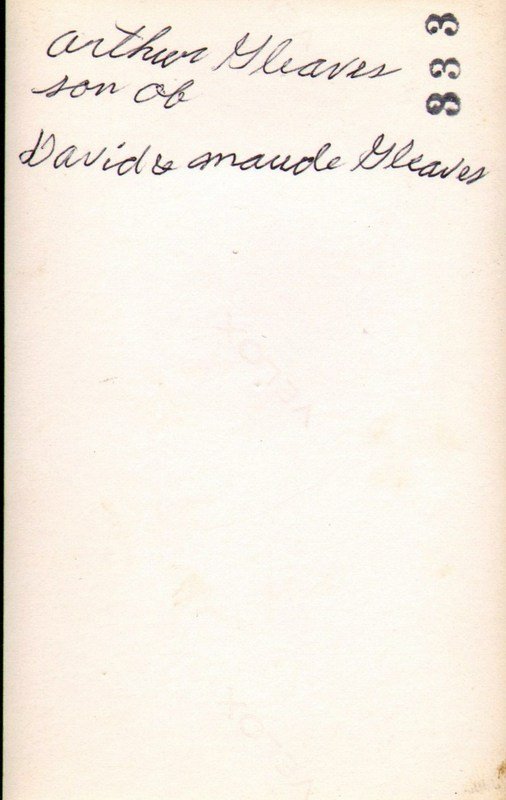 Arthur Gleaves
son of
David & Maude Gleaves
833
VELOX
VELOX